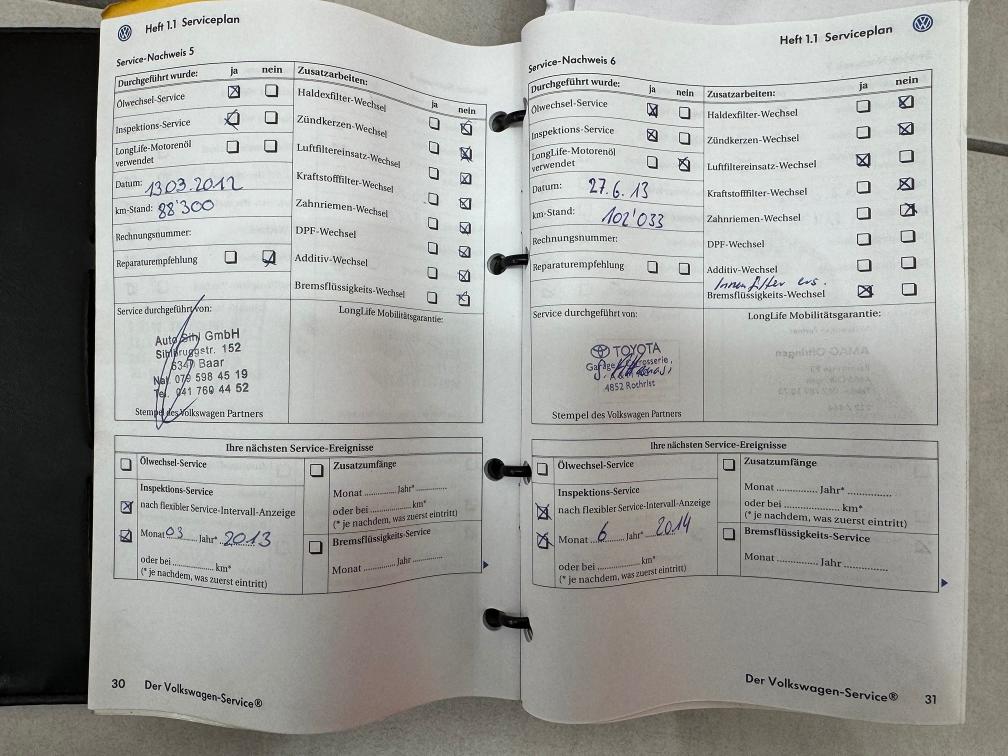 Heft 1.1 Serviceplan
Service-Nachweis 5
Durchgeführt wurde: ja nein
Ölwechsel-Service
Inspektions-Service
LongLife-Motorenöl
verwendet
Datum: 13.03.2012
km-Stand: 88'300
Rechnungsnummer:
Reparaturempfehlung
Zusatzarbeiten:
ja nein
Haldexfilter-Wechsel
Zündkerzen-Wechsel
Luftfiltereinsatz-Wechsel
Kraftstofffilter-Wechsel
Zahnriemen-Wechsel
DPF-Wechsel
Additiv-Wechsel
Bremsflüssigkeits-Wechsel
Service durchgeführt von:
Auto Sihl GmbH
Sihlbruggstr. 152
6340 Baar
Nat. 079 598 45 19
Tel. 041 760 44 52
Stempel des Volkswagen Partners
LongLife Mobilitätsgarantie:
Ihre nächsten Service-Ereignisse
Ölwechsel-Service
Inspektions-Service
nach flexibler Service-Intervall-Anzeige
Monat 03 Jahr* 2013
oder bei ............... km*
(* je nachdem, was zuerst eintritt)
Zusatzumfänge
Monat ............ Jahr* ...............
oder bei ............... km*
(* je nachdem, was zuerst eintritt)
Bremsflüssigkeits-Service
Monat ............ Jahr ...............
30 Der Volkswagen-Service®
Heft 1.1 Serviceplan
Service-Nachweis 6
Durchgeführt wurde: ja nein
Ölwechsel-Service
Inspektions-Service
LongLife-Motorenöl
verwendet
Datum: 27.6.13
km-Stand: 102'033
Rechnungsnummer:
Reparaturempfehlung
Zusatzarbeiten: ja nein
Haldexfilter-Wechsel
Zündkerzen-Wechsel
Luftfiltereinsatz-Wechsel
Kraftstofffilter-Wechsel
Zahnriemen-Wechsel
DPF-Wechsel
Additiv-Wechsel
Innenfilter ers.
Bremsflüssigkeits-Wechsel
Service durchgeführt von:
TOYOTA
4852 Rothrist
Stempel des Volkswagen Partners
LongLife Mobilitätsgarantie:
Ihre nächsten Service-Ereignisse
Ölwechsel-Service
Inspektions-Service
nach flexibler Service-Intervall-Anzeige
Monat 6 Jahr* 2014
oder bei ............... km*
(* je nachdem, was zuerst eintritt)
Zusatzumfänge
Monat ............ Jahr* ...............
oder bei ............... km*
(* je nachdem, was zuerst eintritt)
Bremsflüssigkeits-Service
Monat ............ Jahr ...............
Der Volkswagen-Service® 31